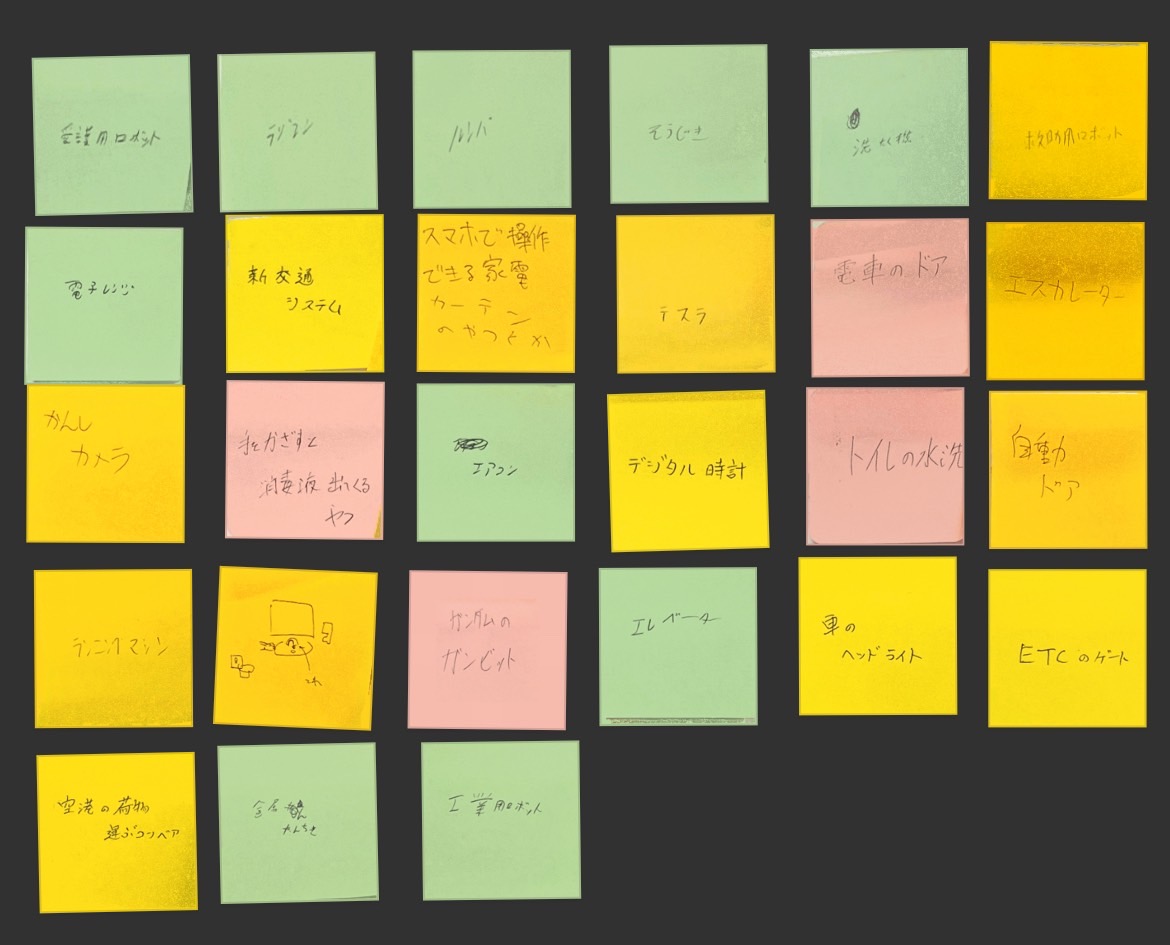 介護用ロボット
ラジコン
ルンバ
そうじき
洗たく機
救助用ロボット
電子レンジ
新交通
システム
スマホで操作
できる家電
カーテン
のやつとか
テスラ
電車のドア
エスカレーター
かんし
カメラ
手をかざすと
消毒液出てくる
やつ
エアコン
デジタル時計
トイレの水洗
自動
ドア
ランニングマシン
これ
ガンダムの
ガンビット
エレベータ
車の
ヘッドライト
ETCのゲート
空港の荷物
運ぶコンベア
金属
たんちき
工業用ロボット